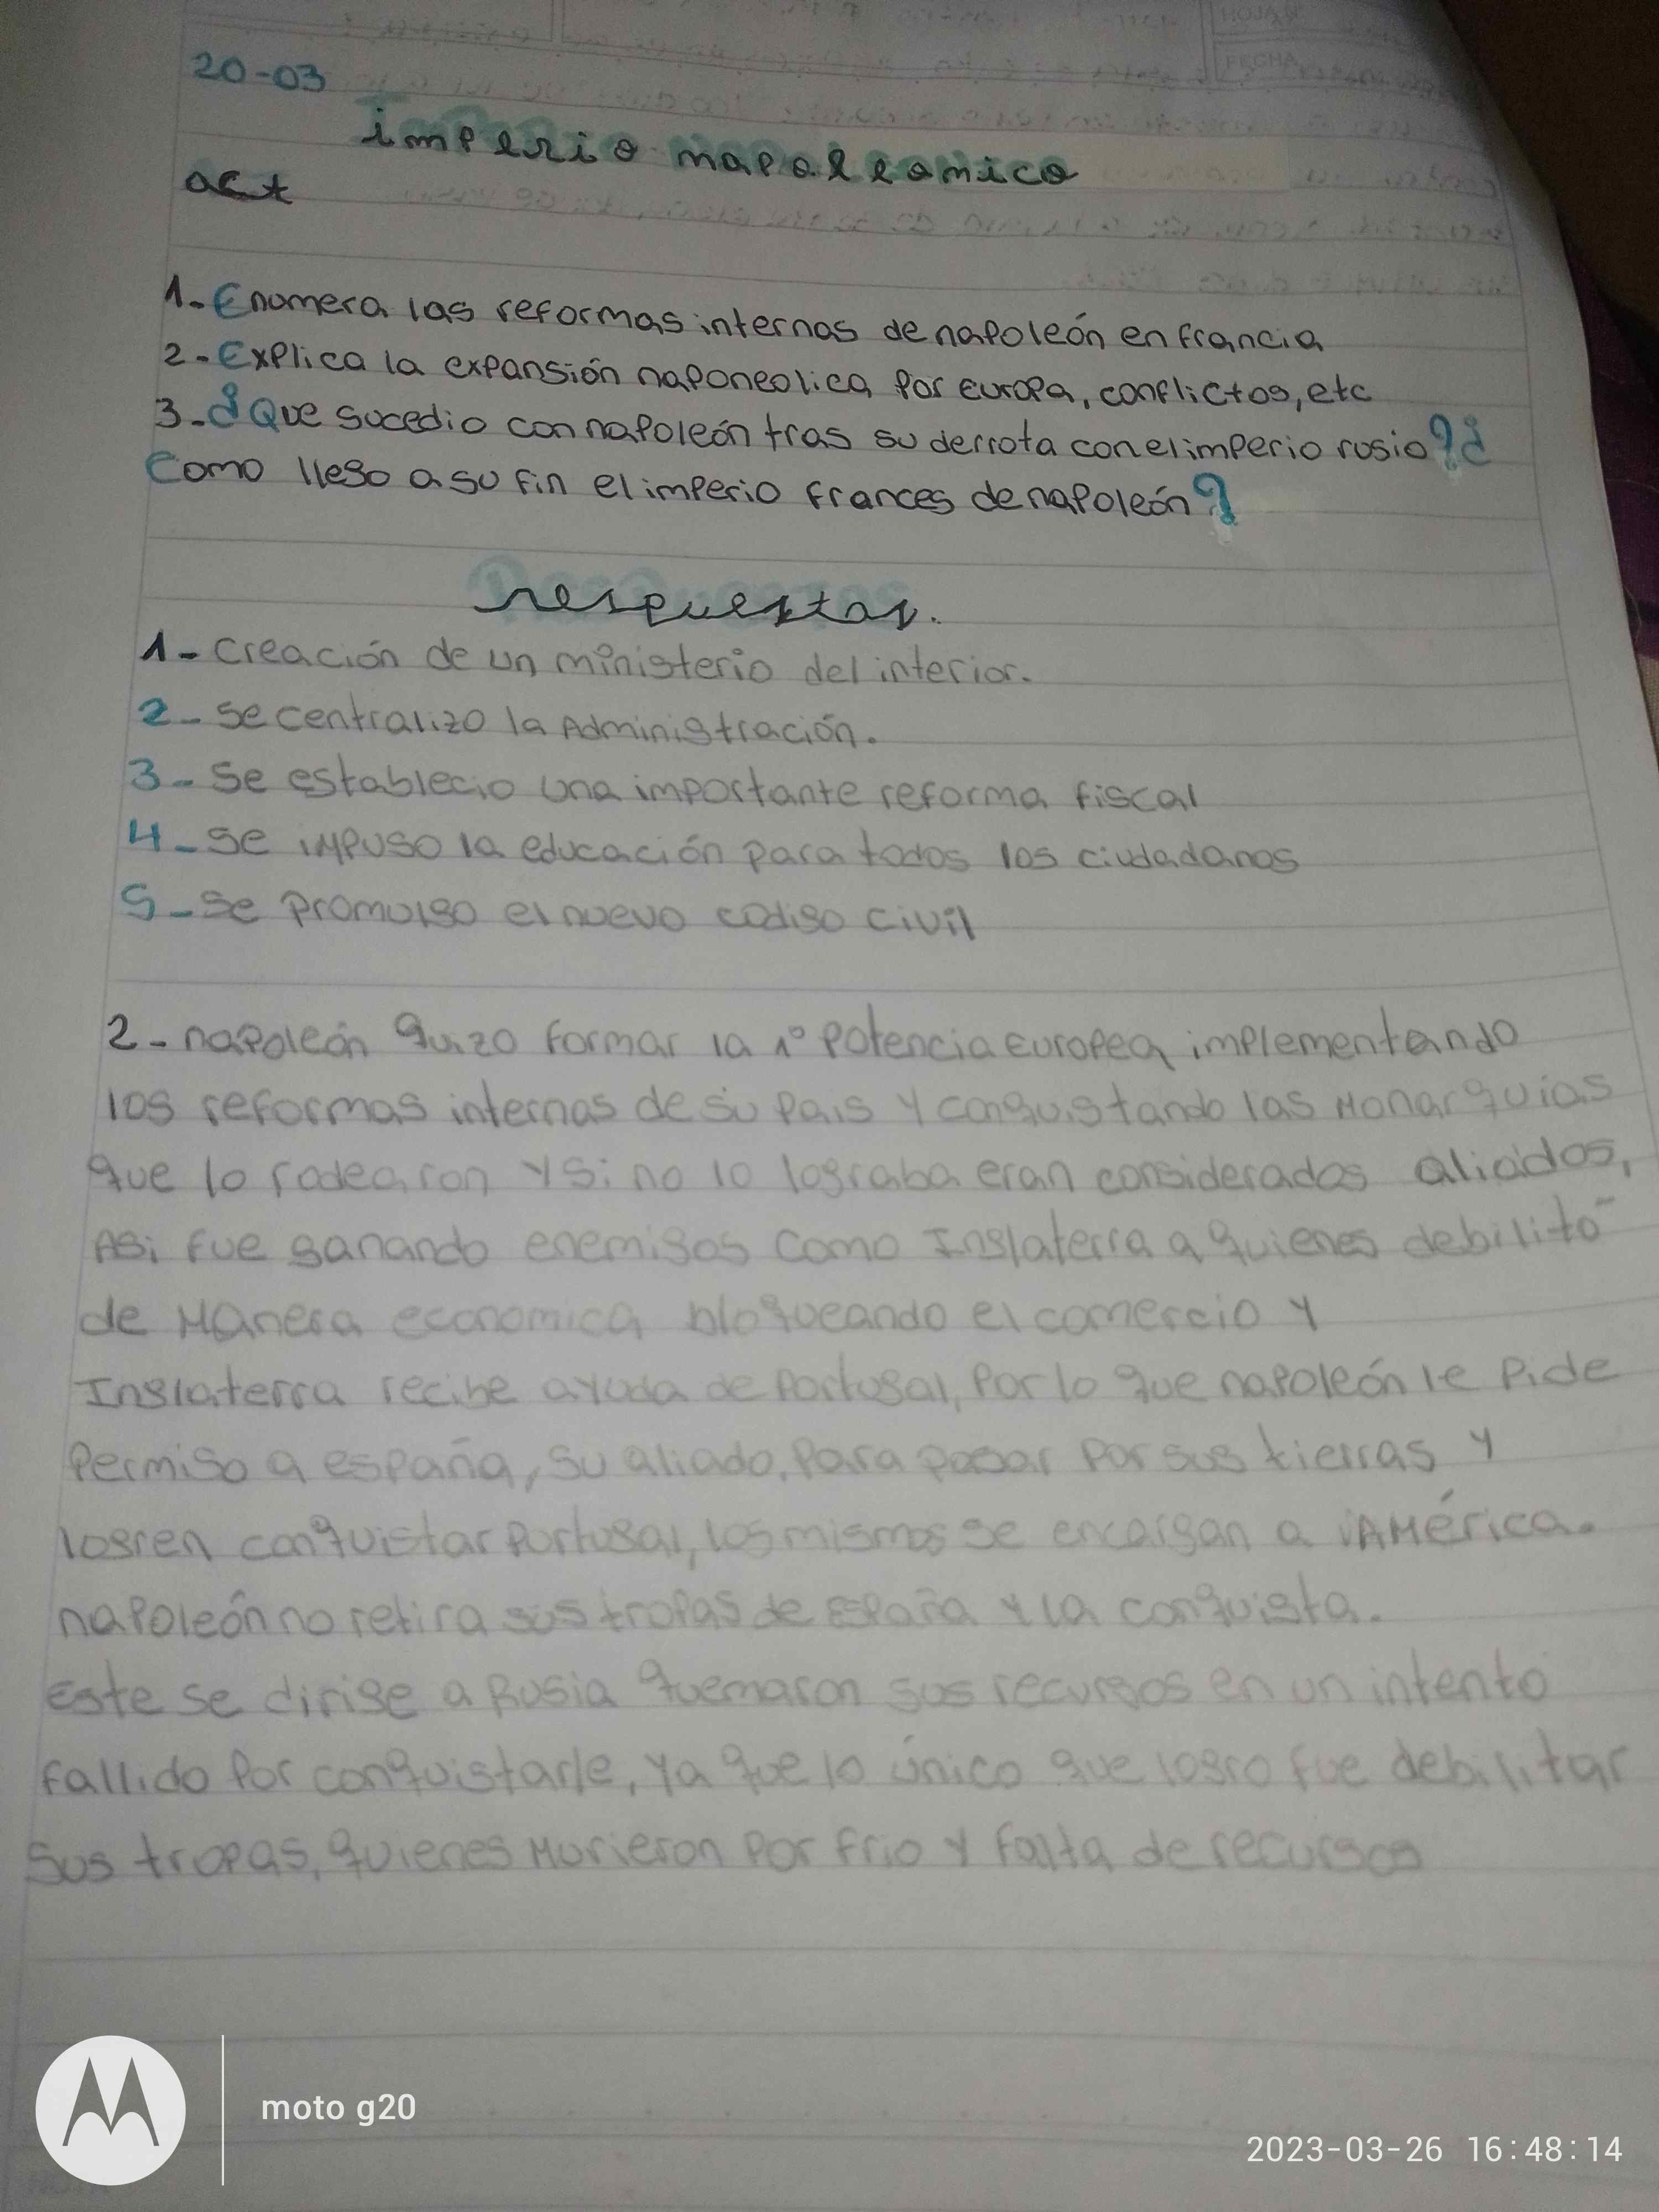 20-03
imperio napoleonico
act
1-Enomera las reformas internas de napoleón en francia
2-Explica la expansión naponeolica por europa, conflictos, etc
3-¿Que sucedio con napoleón tras su derrota con el imperio rusio?¿
Como llego a su fin el imperio frances de napoleón?
respuestas.
1- creación de un ministerio del interior.
2- se centralizo la Administración.
3- Se establecio una importante reforma fiscal
4- se impuso la educación para todos los ciudadanos
5- se promulgo el nuevo codigo civil
2- napoleón quizo formar la 1° potencia europea, implementando
los reformas internas de su pais y conquistando las Monarquias
que lo rodearon y si no lo lograba eran considerados aliados,
Asi fue ganando enemigos como Inglaterra a quienes debilito
de Manera economica, bloqueando el comercio y
Inglaterra recibe ayuda de Portugal, por lo que napoleón le pide
permiso a españa, su aliado, para pasar por sus tierras y
logren conquistar Portugal, los mismos se encargan a América.
napoleón no retira sus tropas de España y la conquista.
Este se dirige a Rusia quemaron sus recursos en un intento
fallido por conquistarle, ya que lo único que logro fue debilitar
sus tropas, quienes Murieron por frio y falta de recursos
moto g20
2023-03-26 16:48:14